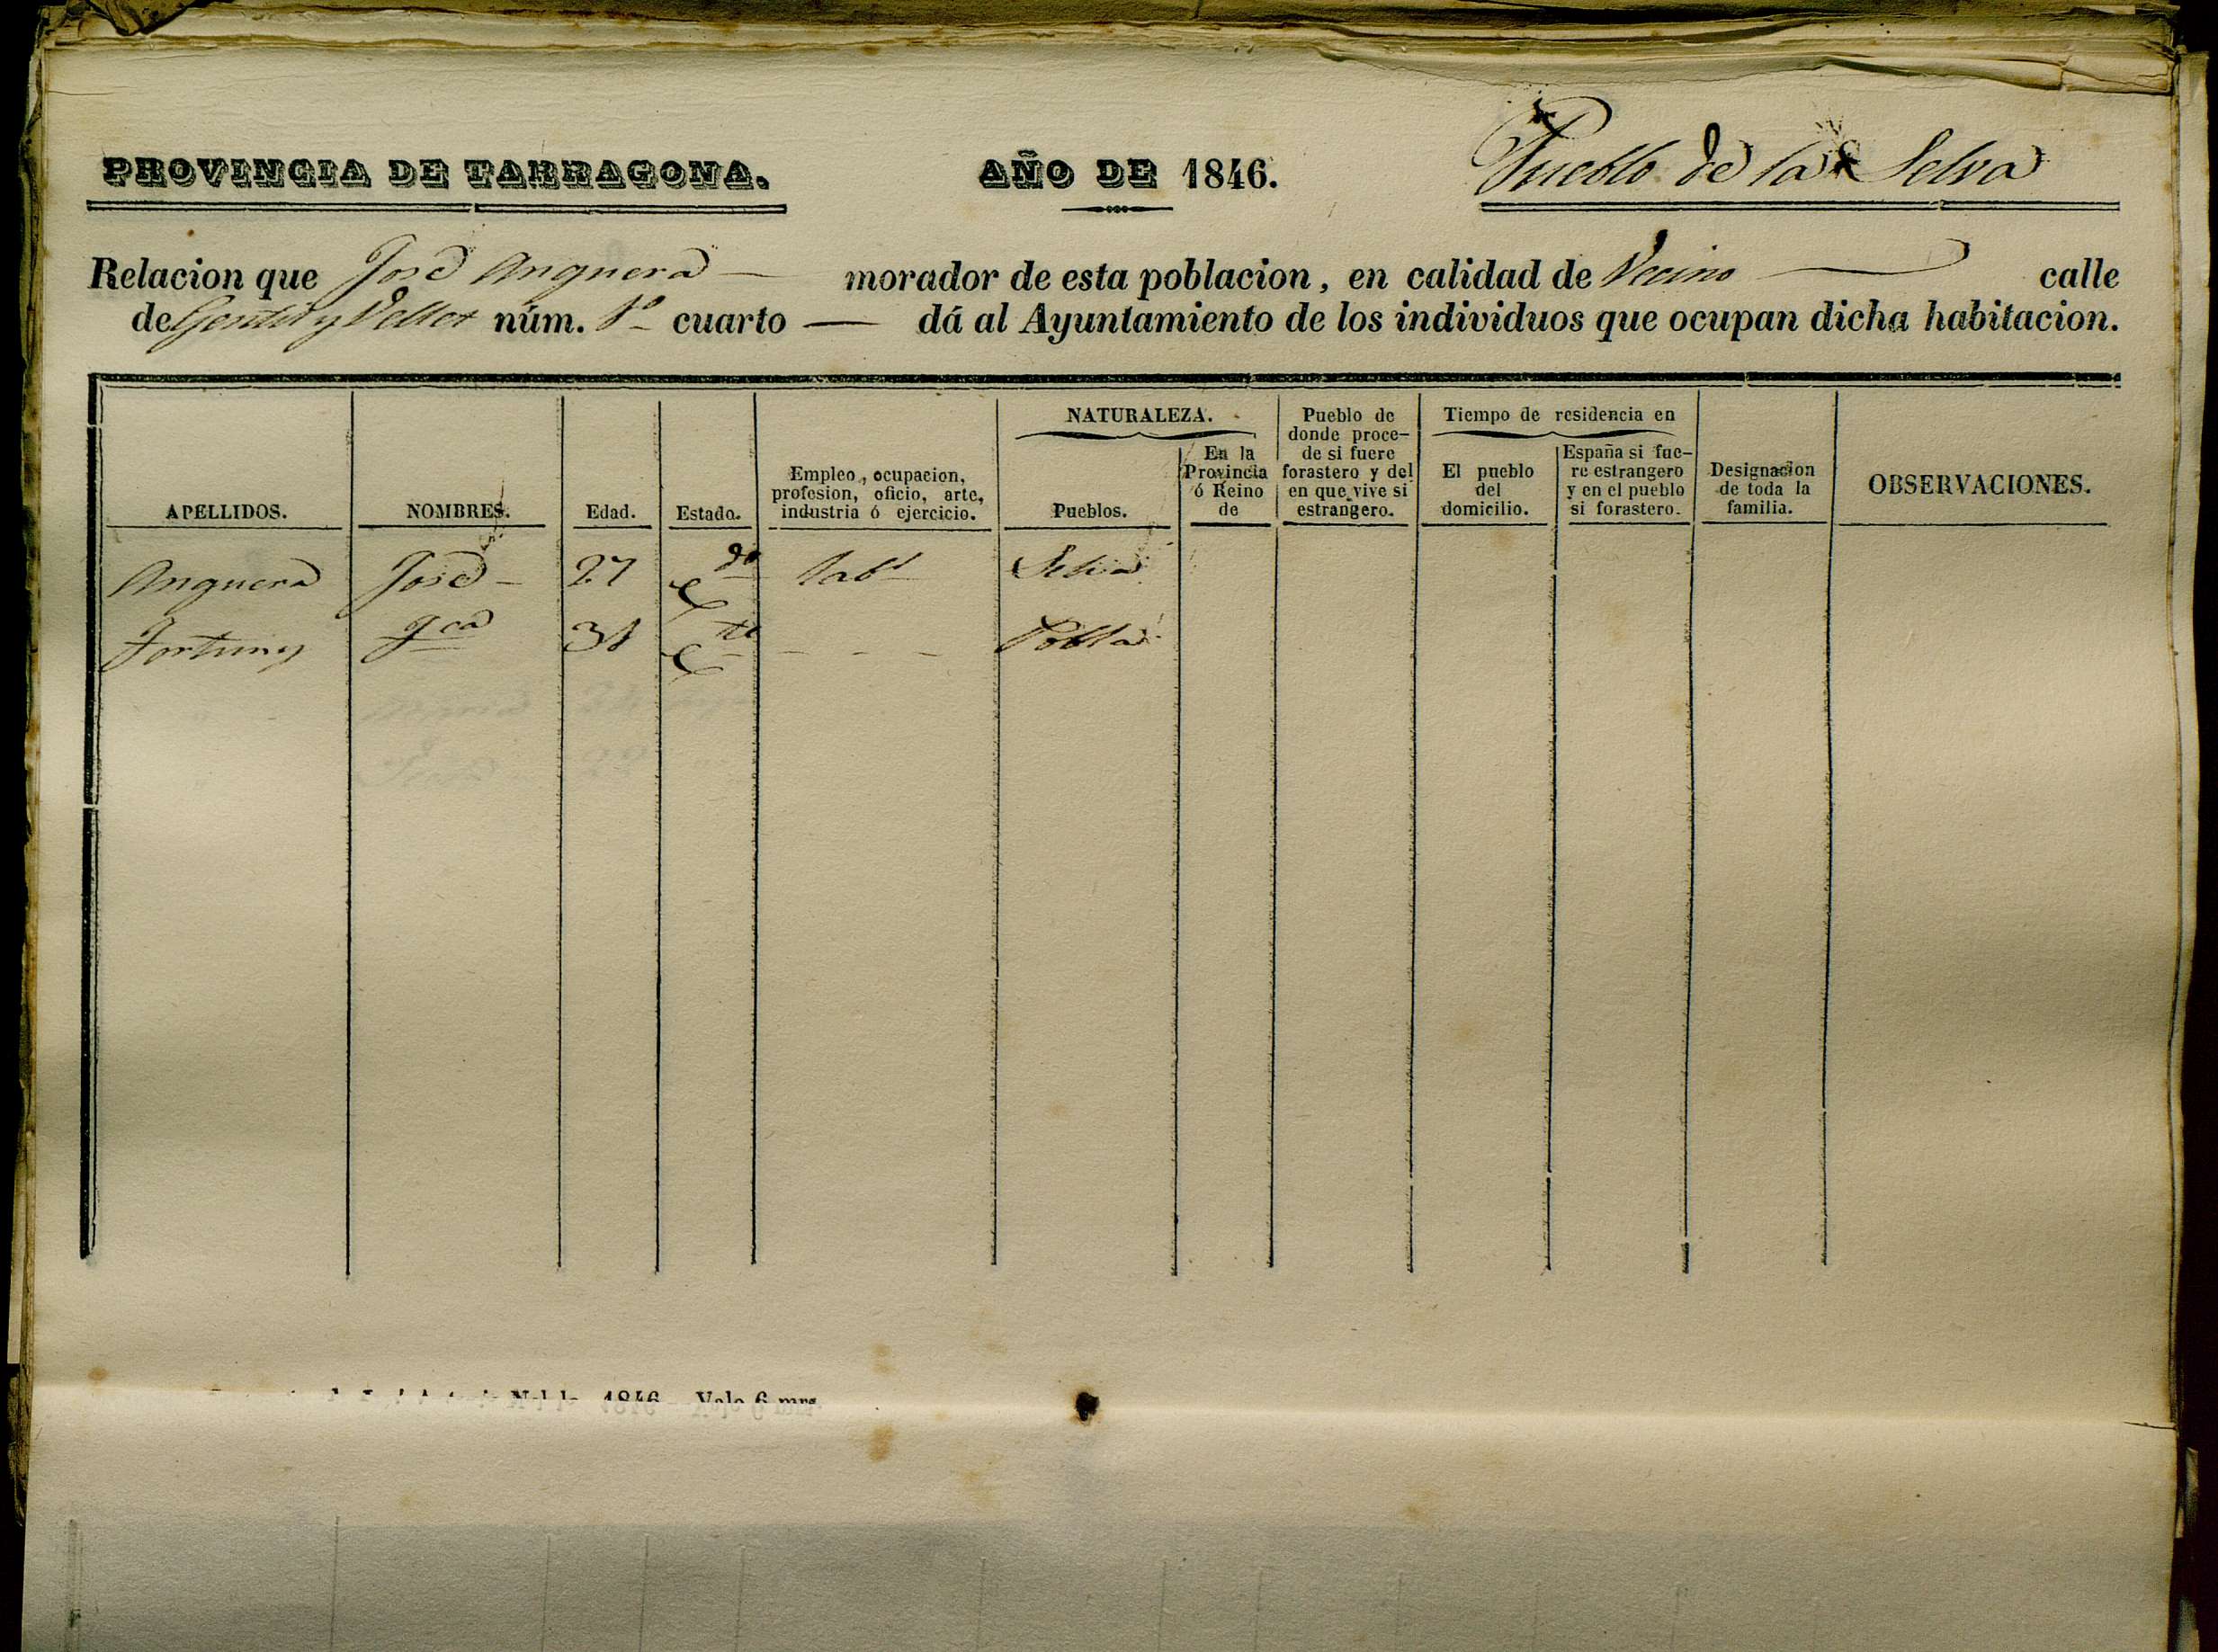 PROVINCIA DE TARRAGONA. AÑO DE 1846. Pueblo de la Selva
Relacion que José Anguera morador de esta poblacion, en calidad de Vecino calle
de Gentil y Vellet núm. 1º cuarto — dá al Ayuntamiento de los individuos que ocupan dicha habitacion.
APELLIDOS. NOMBRES. Edad. Estado. Empleo, ocupacion, profesion, oficio, arte, industria ó ejercicio. NATURALEZA. Pueblos. En la Provincia ó Reino de Pueblo de donde procede si fuere forastero y del en que vive si estrangero. Tiempo de residencia en El pueblo del domicilio. España si fuere estrangero y en el pueblo si forastero. Designacion de toda la familia. OBSERVACIONES.
Anguera José 27 C.do lab.r Selva
Fortuny 31 C.da - - - Pobla
1846 Vale 6 mrs